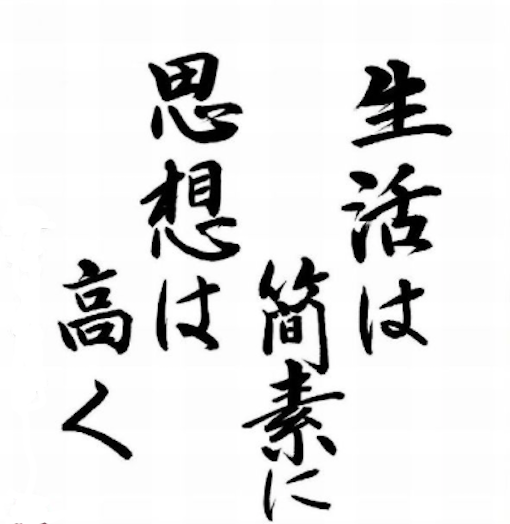 生活は
簡素に
思想は
高く